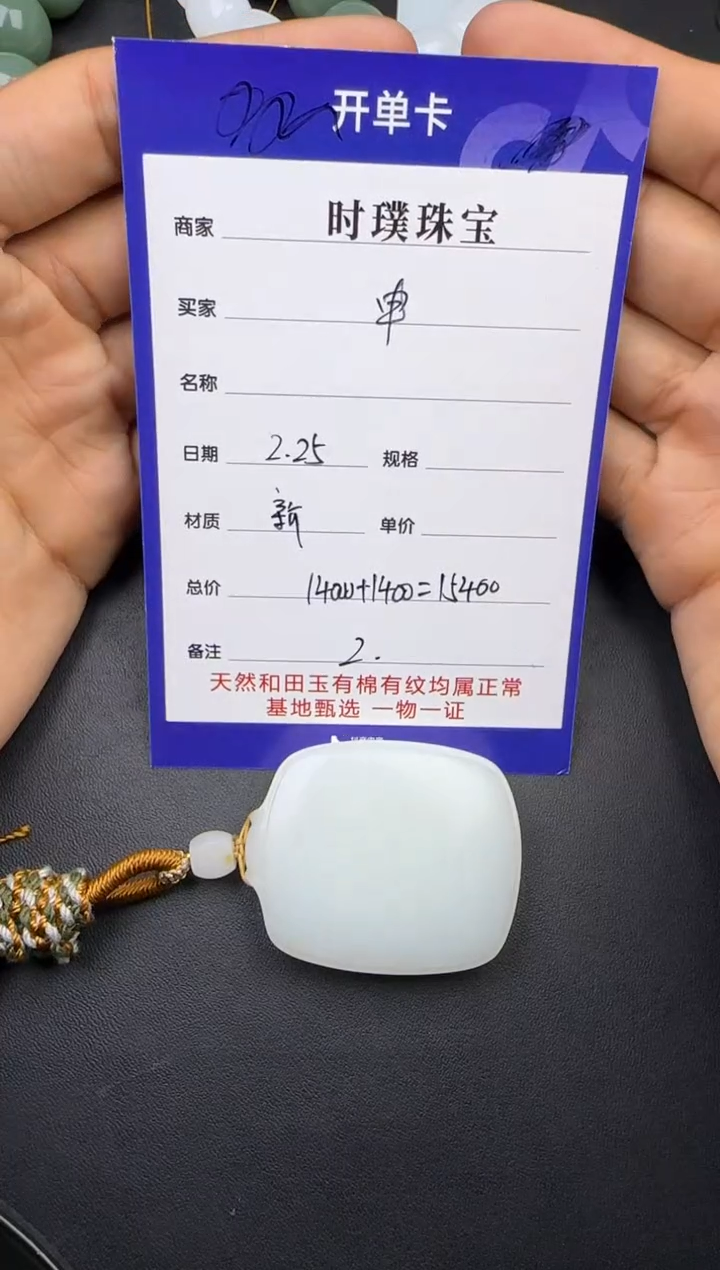 开单卡
商家 时璞珠宝
买家 申
名称
日期 2.25 规格
材质 新 单价
总价 14000+1400=15400
备注 2.
天然和田玉有棉有纹均属正常
基地甄选 一物一证